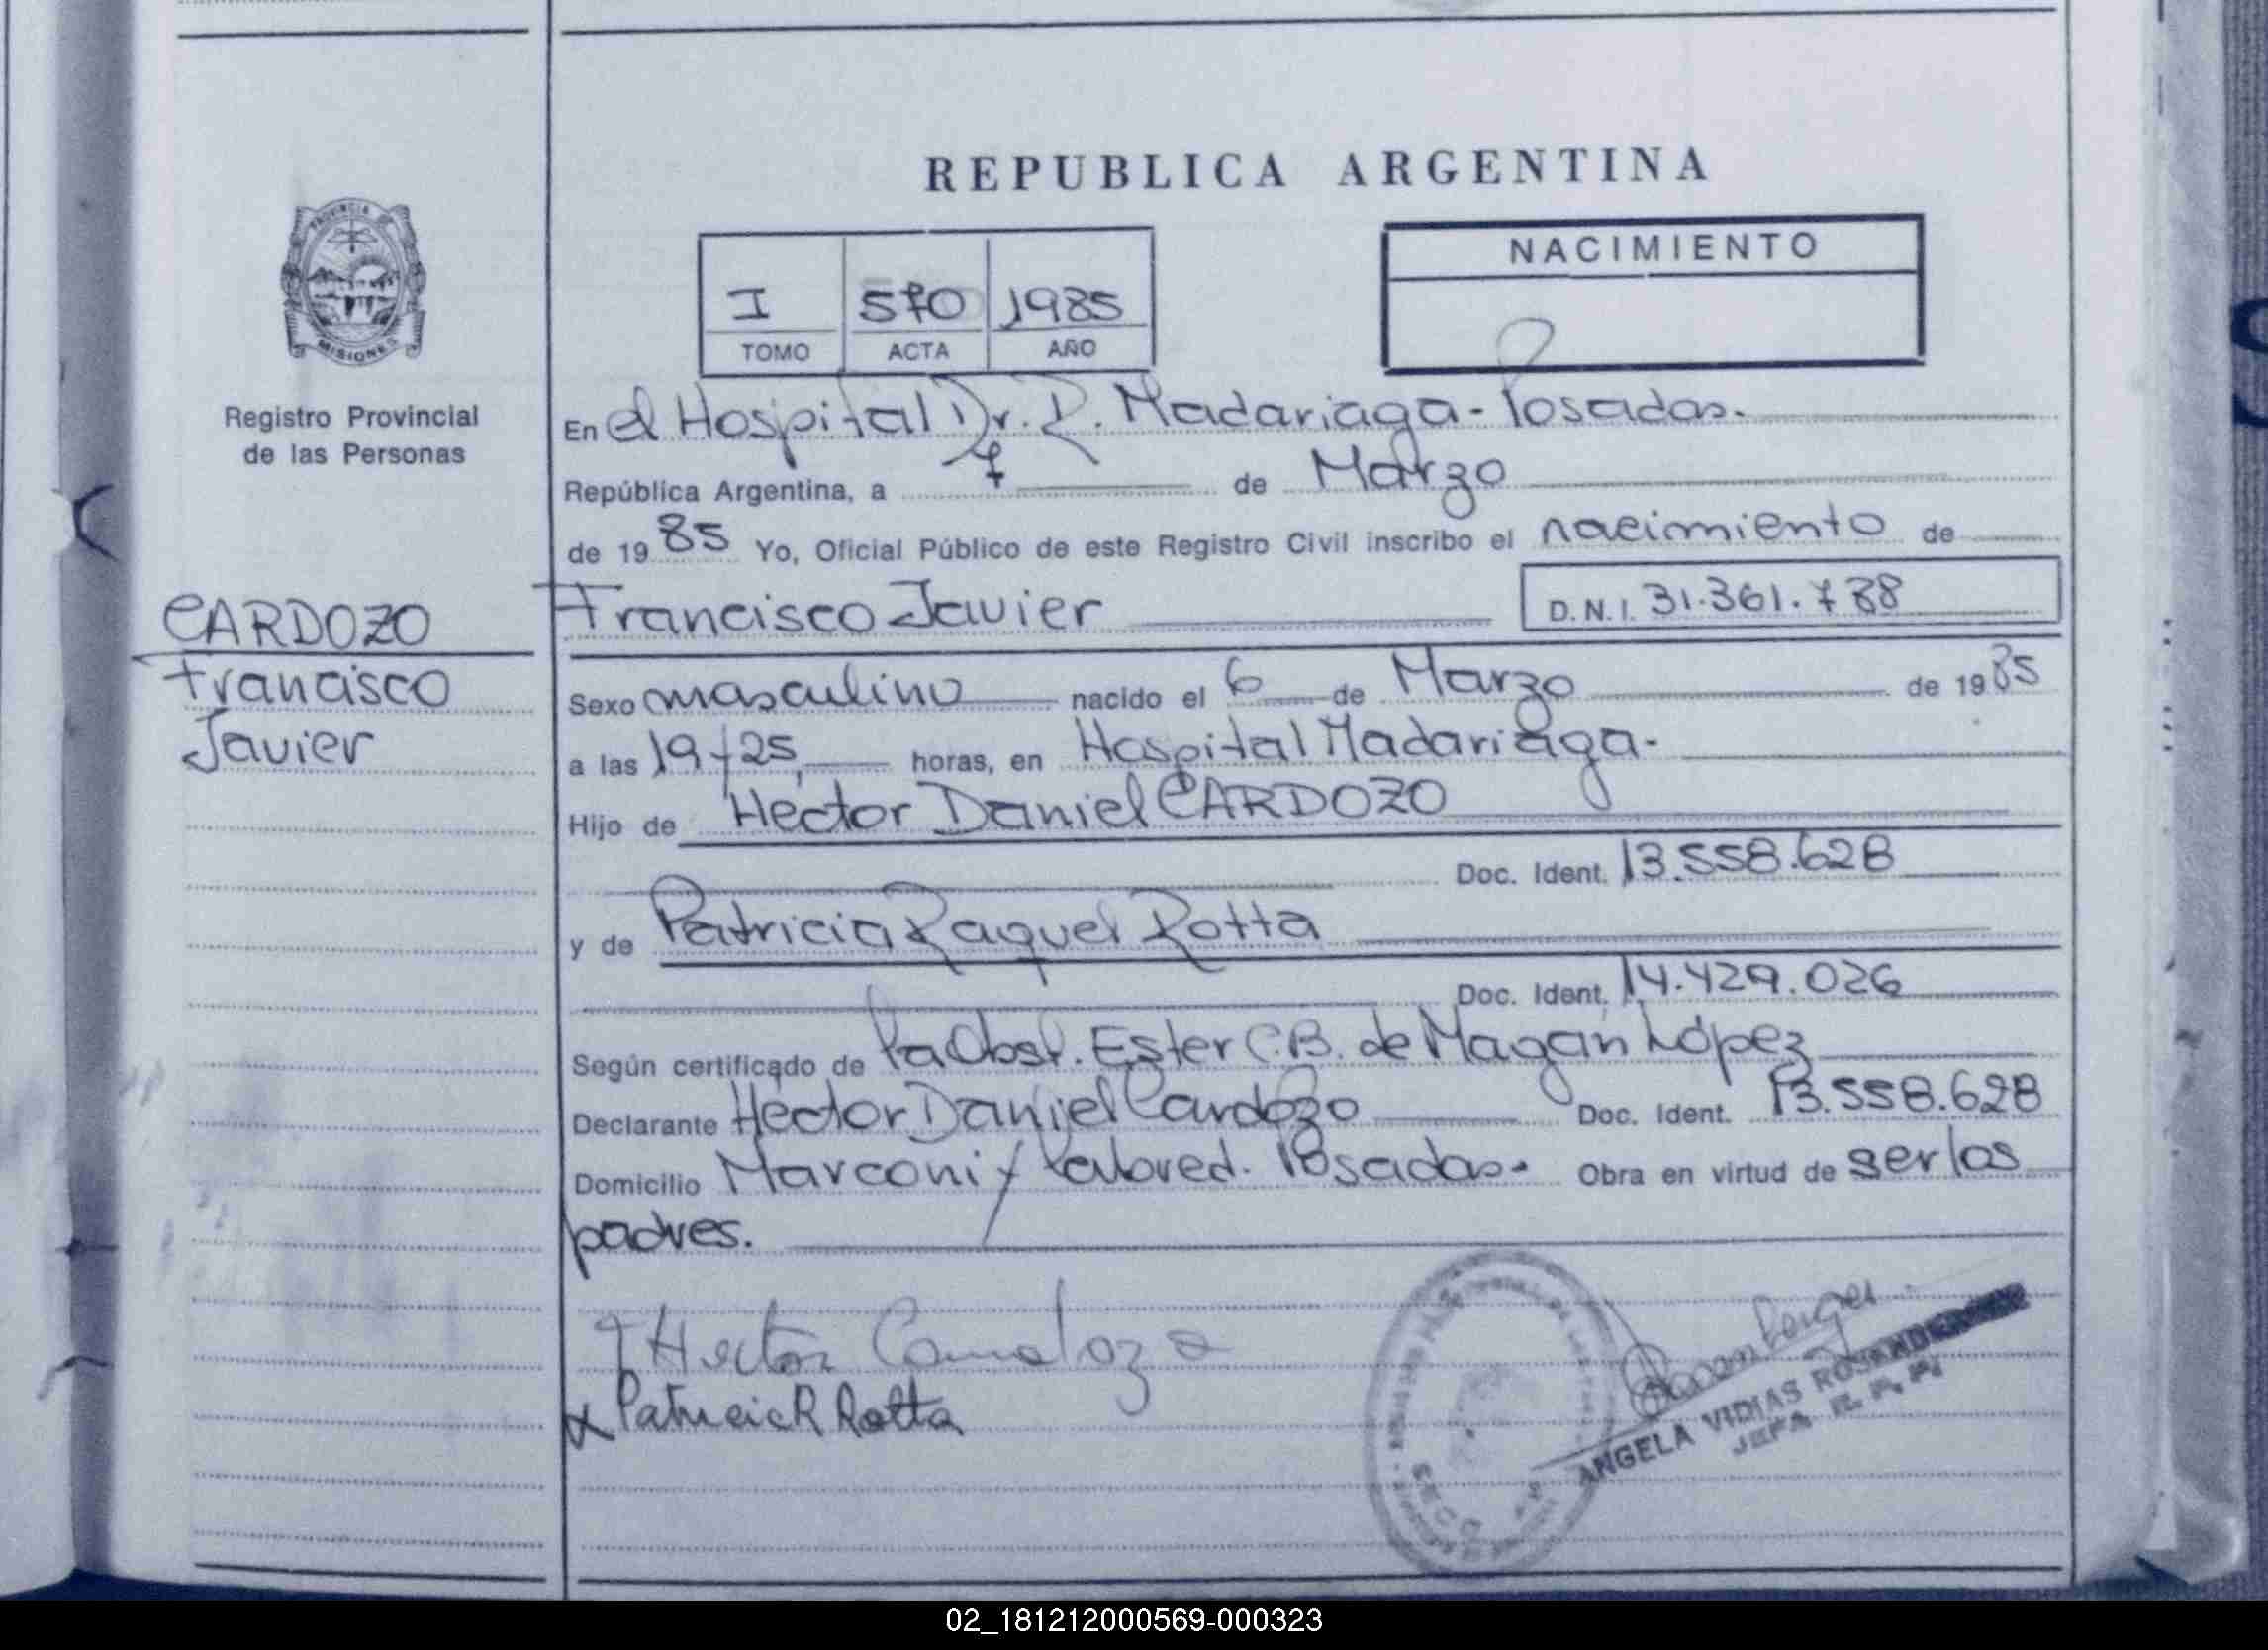 REPUBLICA ARGENTINA
PROVINCIA DE
MISIONES
Registro Provincial
de las Personas
I 570 1985
TOMO ACTA AÑO
NACIMIENTO
En el Hospital Dr. R. Madariaga - Posadas.
República Argentina, a 7 de Marzo
de 1985 Yo, Oficial Público de este Registro Civil inscribo el nacimiento de
Francisco Javier D.N.I. 31.361.788
CARDOZO
Francisco
Javier
Sexo masculino nacido el 6 de Marzo de 1985
a las 19 y 25, horas, en Hospital Madariaga.
Hijo de Hector Daniel CARDOZO
Doc. Ident. 13.558.628
y de Patricia Raquel Rotta
Doc. Ident. 14.429.026
Según certificado de la Obst. Ester C.B. de Magan López
Declarante Hector Daniel Cardozo Doc. Ident. 13.558.628
Domicilio Marconi y Posadas. Obra en virtud de ser los
padres.
Hector Cardozo
Patricia R Rotta
ANGELA VIDIAS
JEFA R. P. P.
02_181212000569-000323